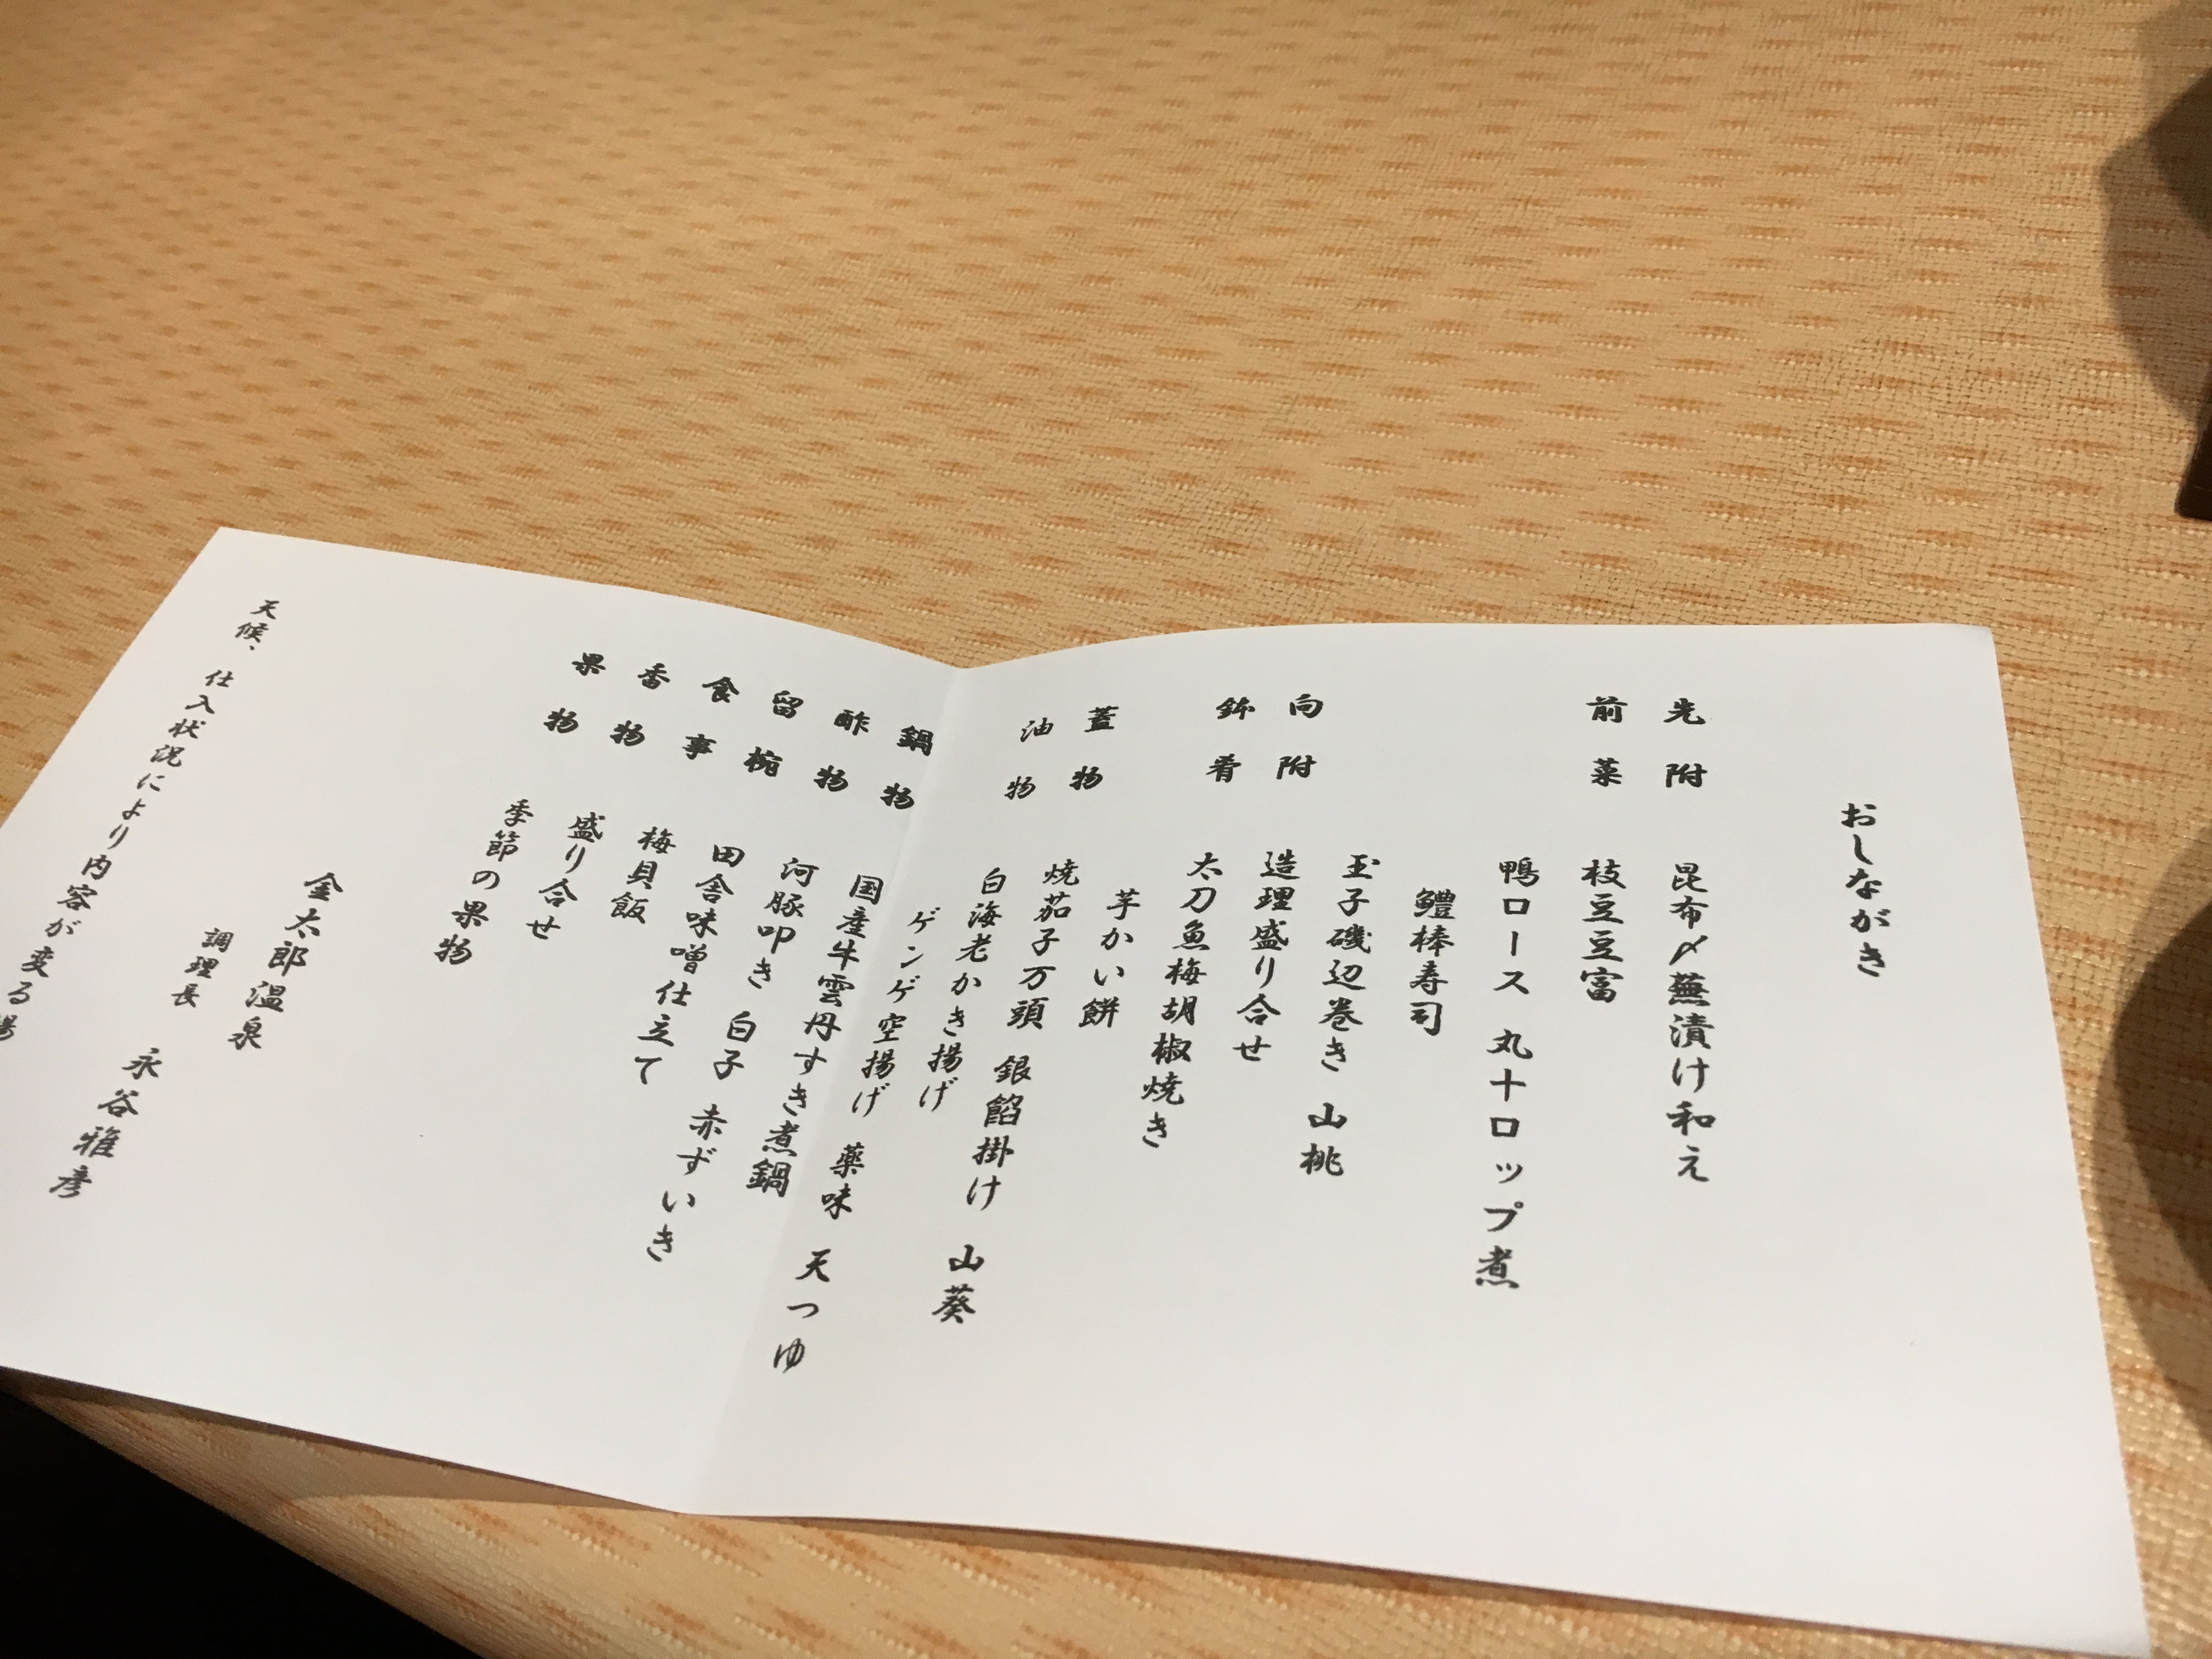 おしながき
先附 昆布〆蕪漬け和え
前菜 枝豆豆富
鴨ロース 丸十ロップ煮
鱧棒寿司
玉子磯辺巻き 山桃
向附 造理盛り合せ
鉢肴 太刀魚梅胡椒焼き
芋かい餅
蓋物 焼茄子万頭 銀餡掛け 山葵
油物 白海老かき揚げ
ゲンゲ空揚げ 薬味 天つゆ
鍋物 国産牛雲丹すき煮鍋
酢物 河豚叩き 白子 赤ずいき
留椀 田舎味噌仕立て
食事 梅貝飯
香物 盛り合せ
果物 季節の果物
金太郎温泉
調理長 永谷雅彦
天候、仕入状況により内容が変る場